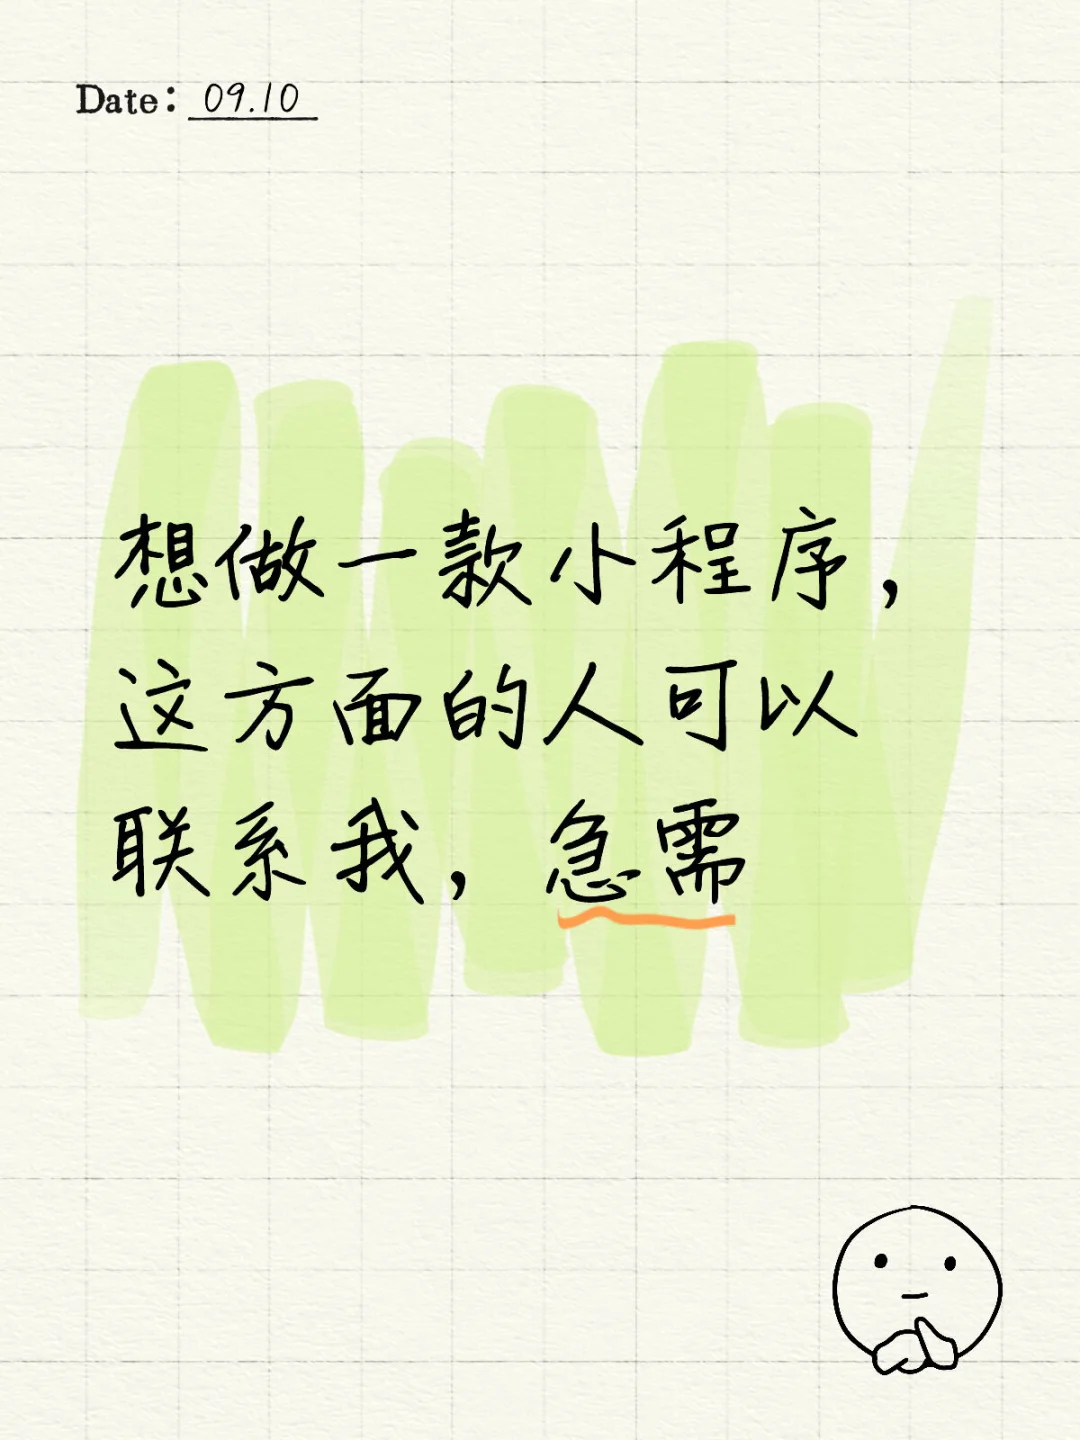 Date: 09.10
想做一款小程序，
这方面的人可以
联系我，急需